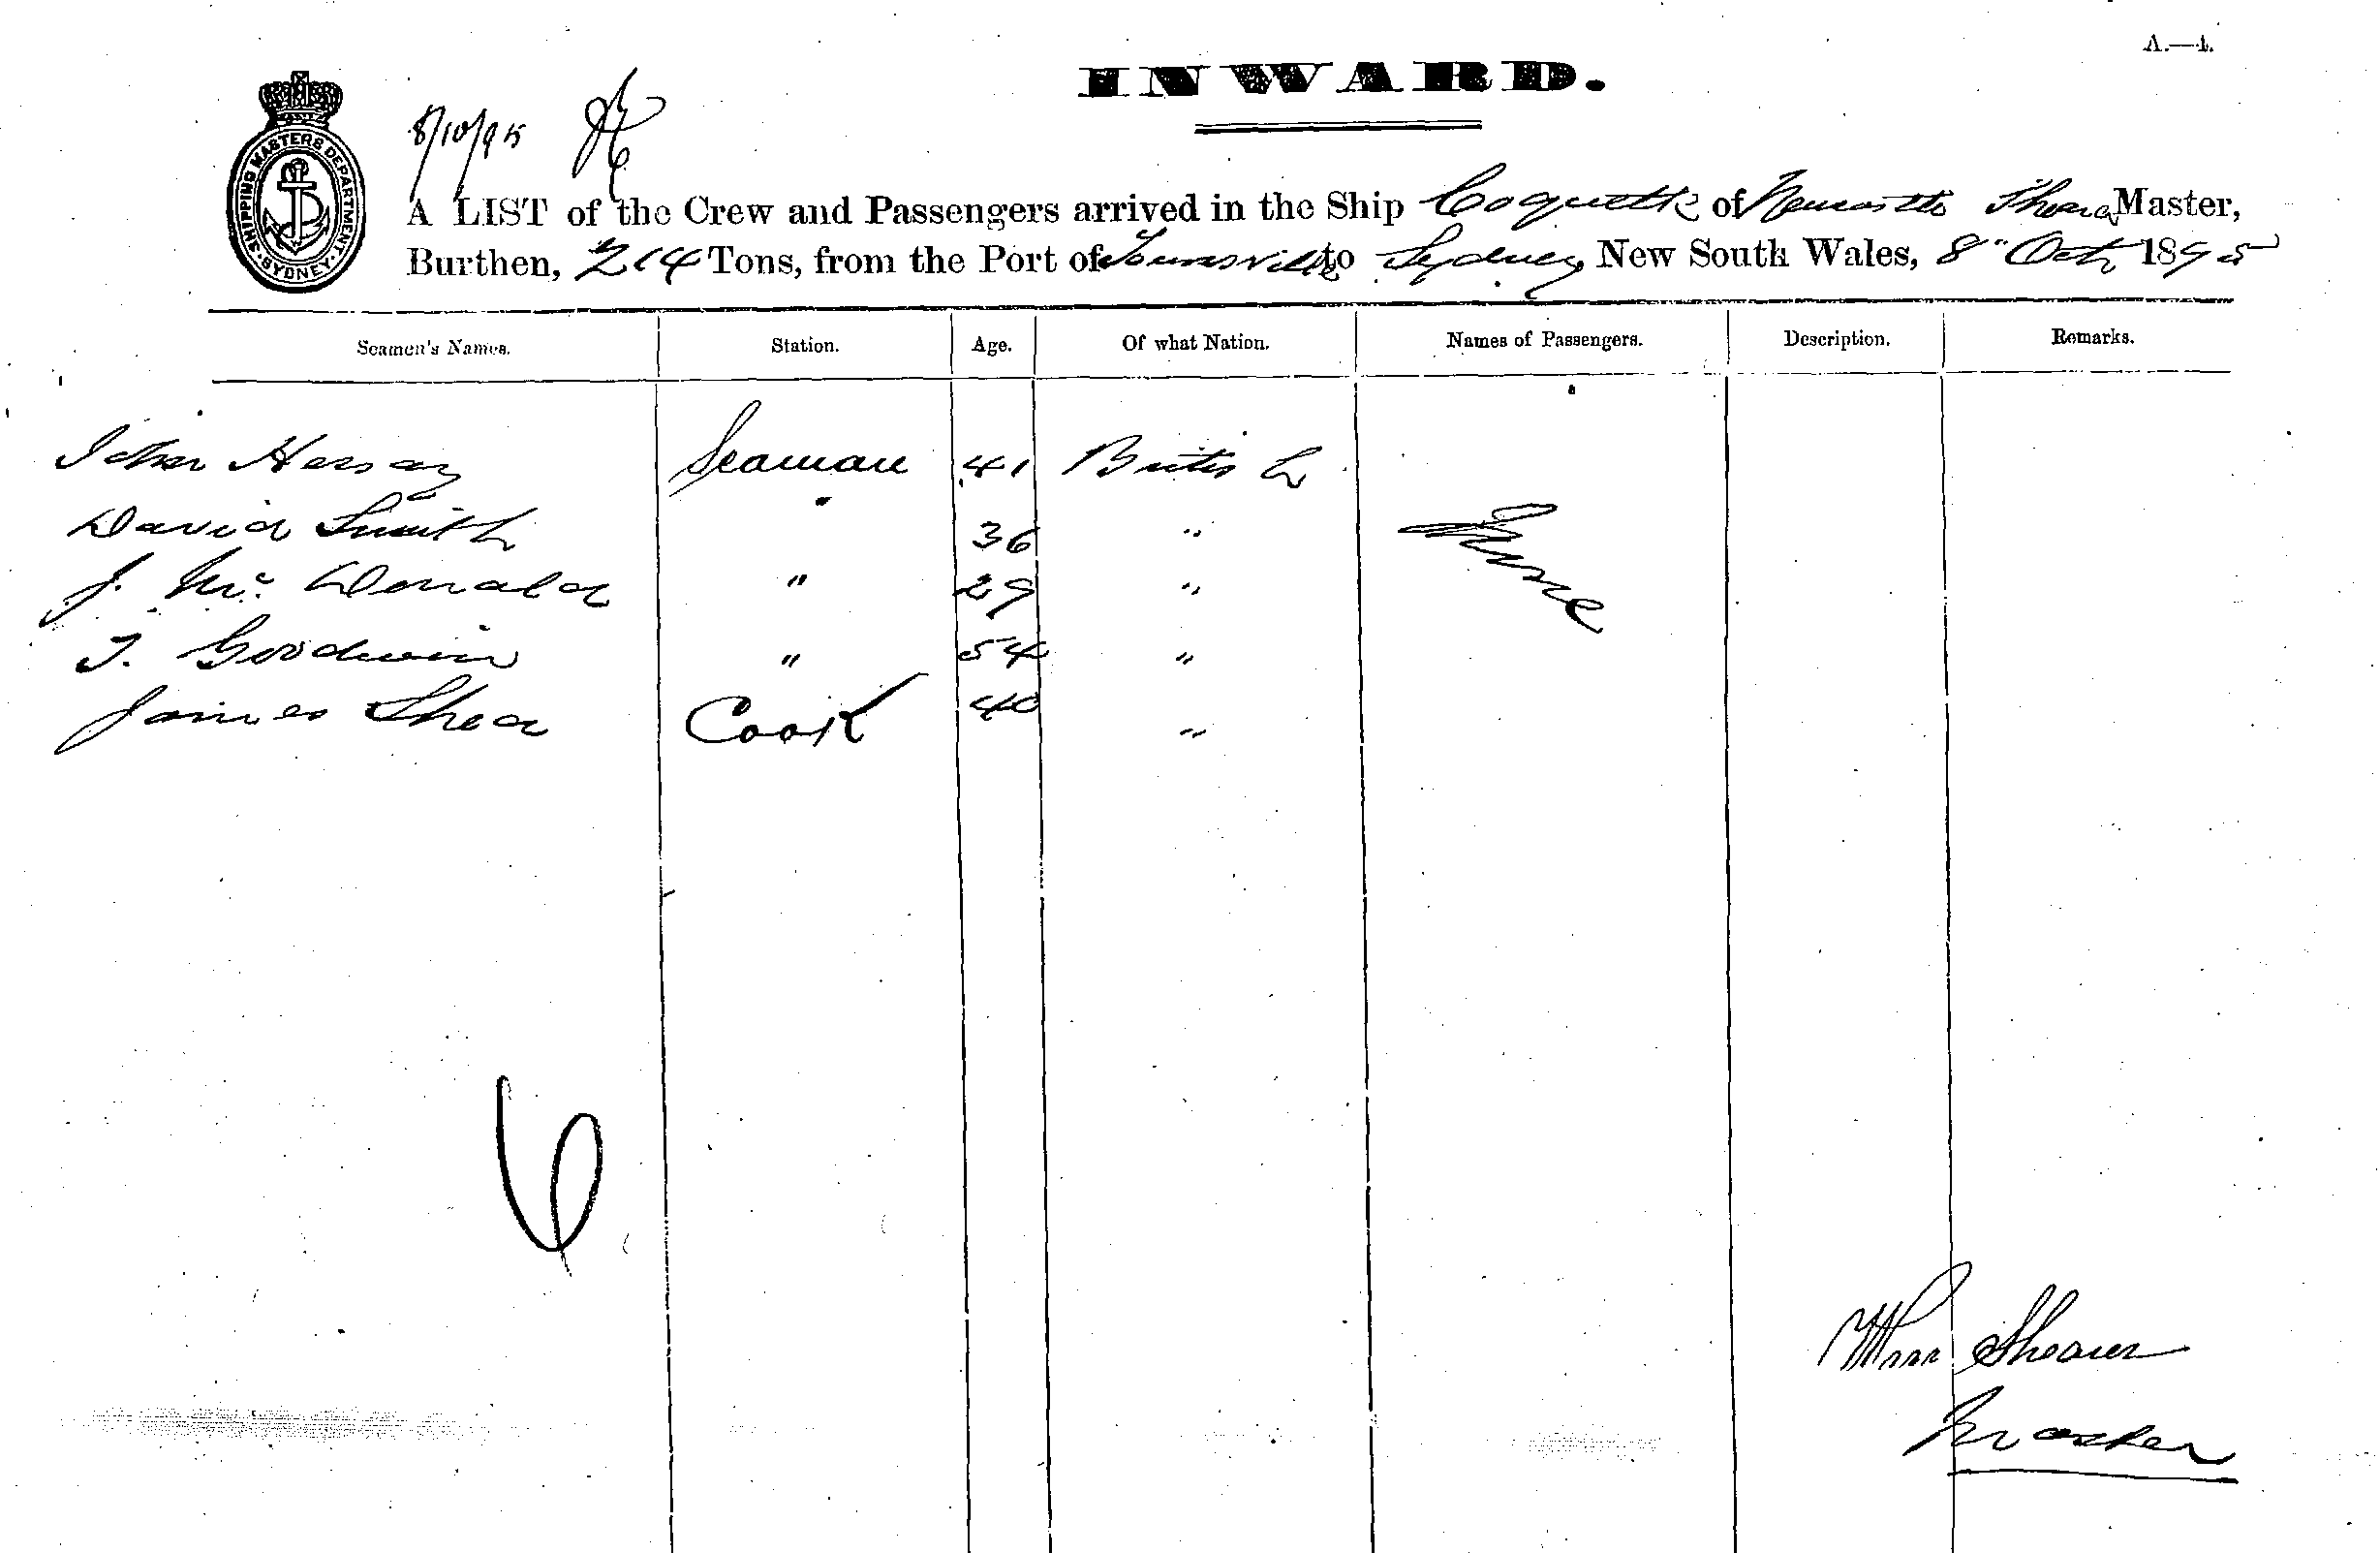 A.—4.
INWARD.
SHIPPING MASTERS DEPARTMENT
SYDNEY
8/10/95
A LIST of the Crew and Passengers arrived in the Ship Coquette of Newcastle Master,
Burthen, 214 Tons, from the Port of Townsville to Sydney, New South Wales, 8" Oct 1895
Seamen's Names. Station. Age. Of what Nation. Names of Passengers. Description. Remarks.
John Seaman 41 British
David Smith " 36 "
J. Mc. Donald " 29 "
T. Goodwin " 54 "
James Shea Cook 40 "
None
6
Wm Shearer
Master